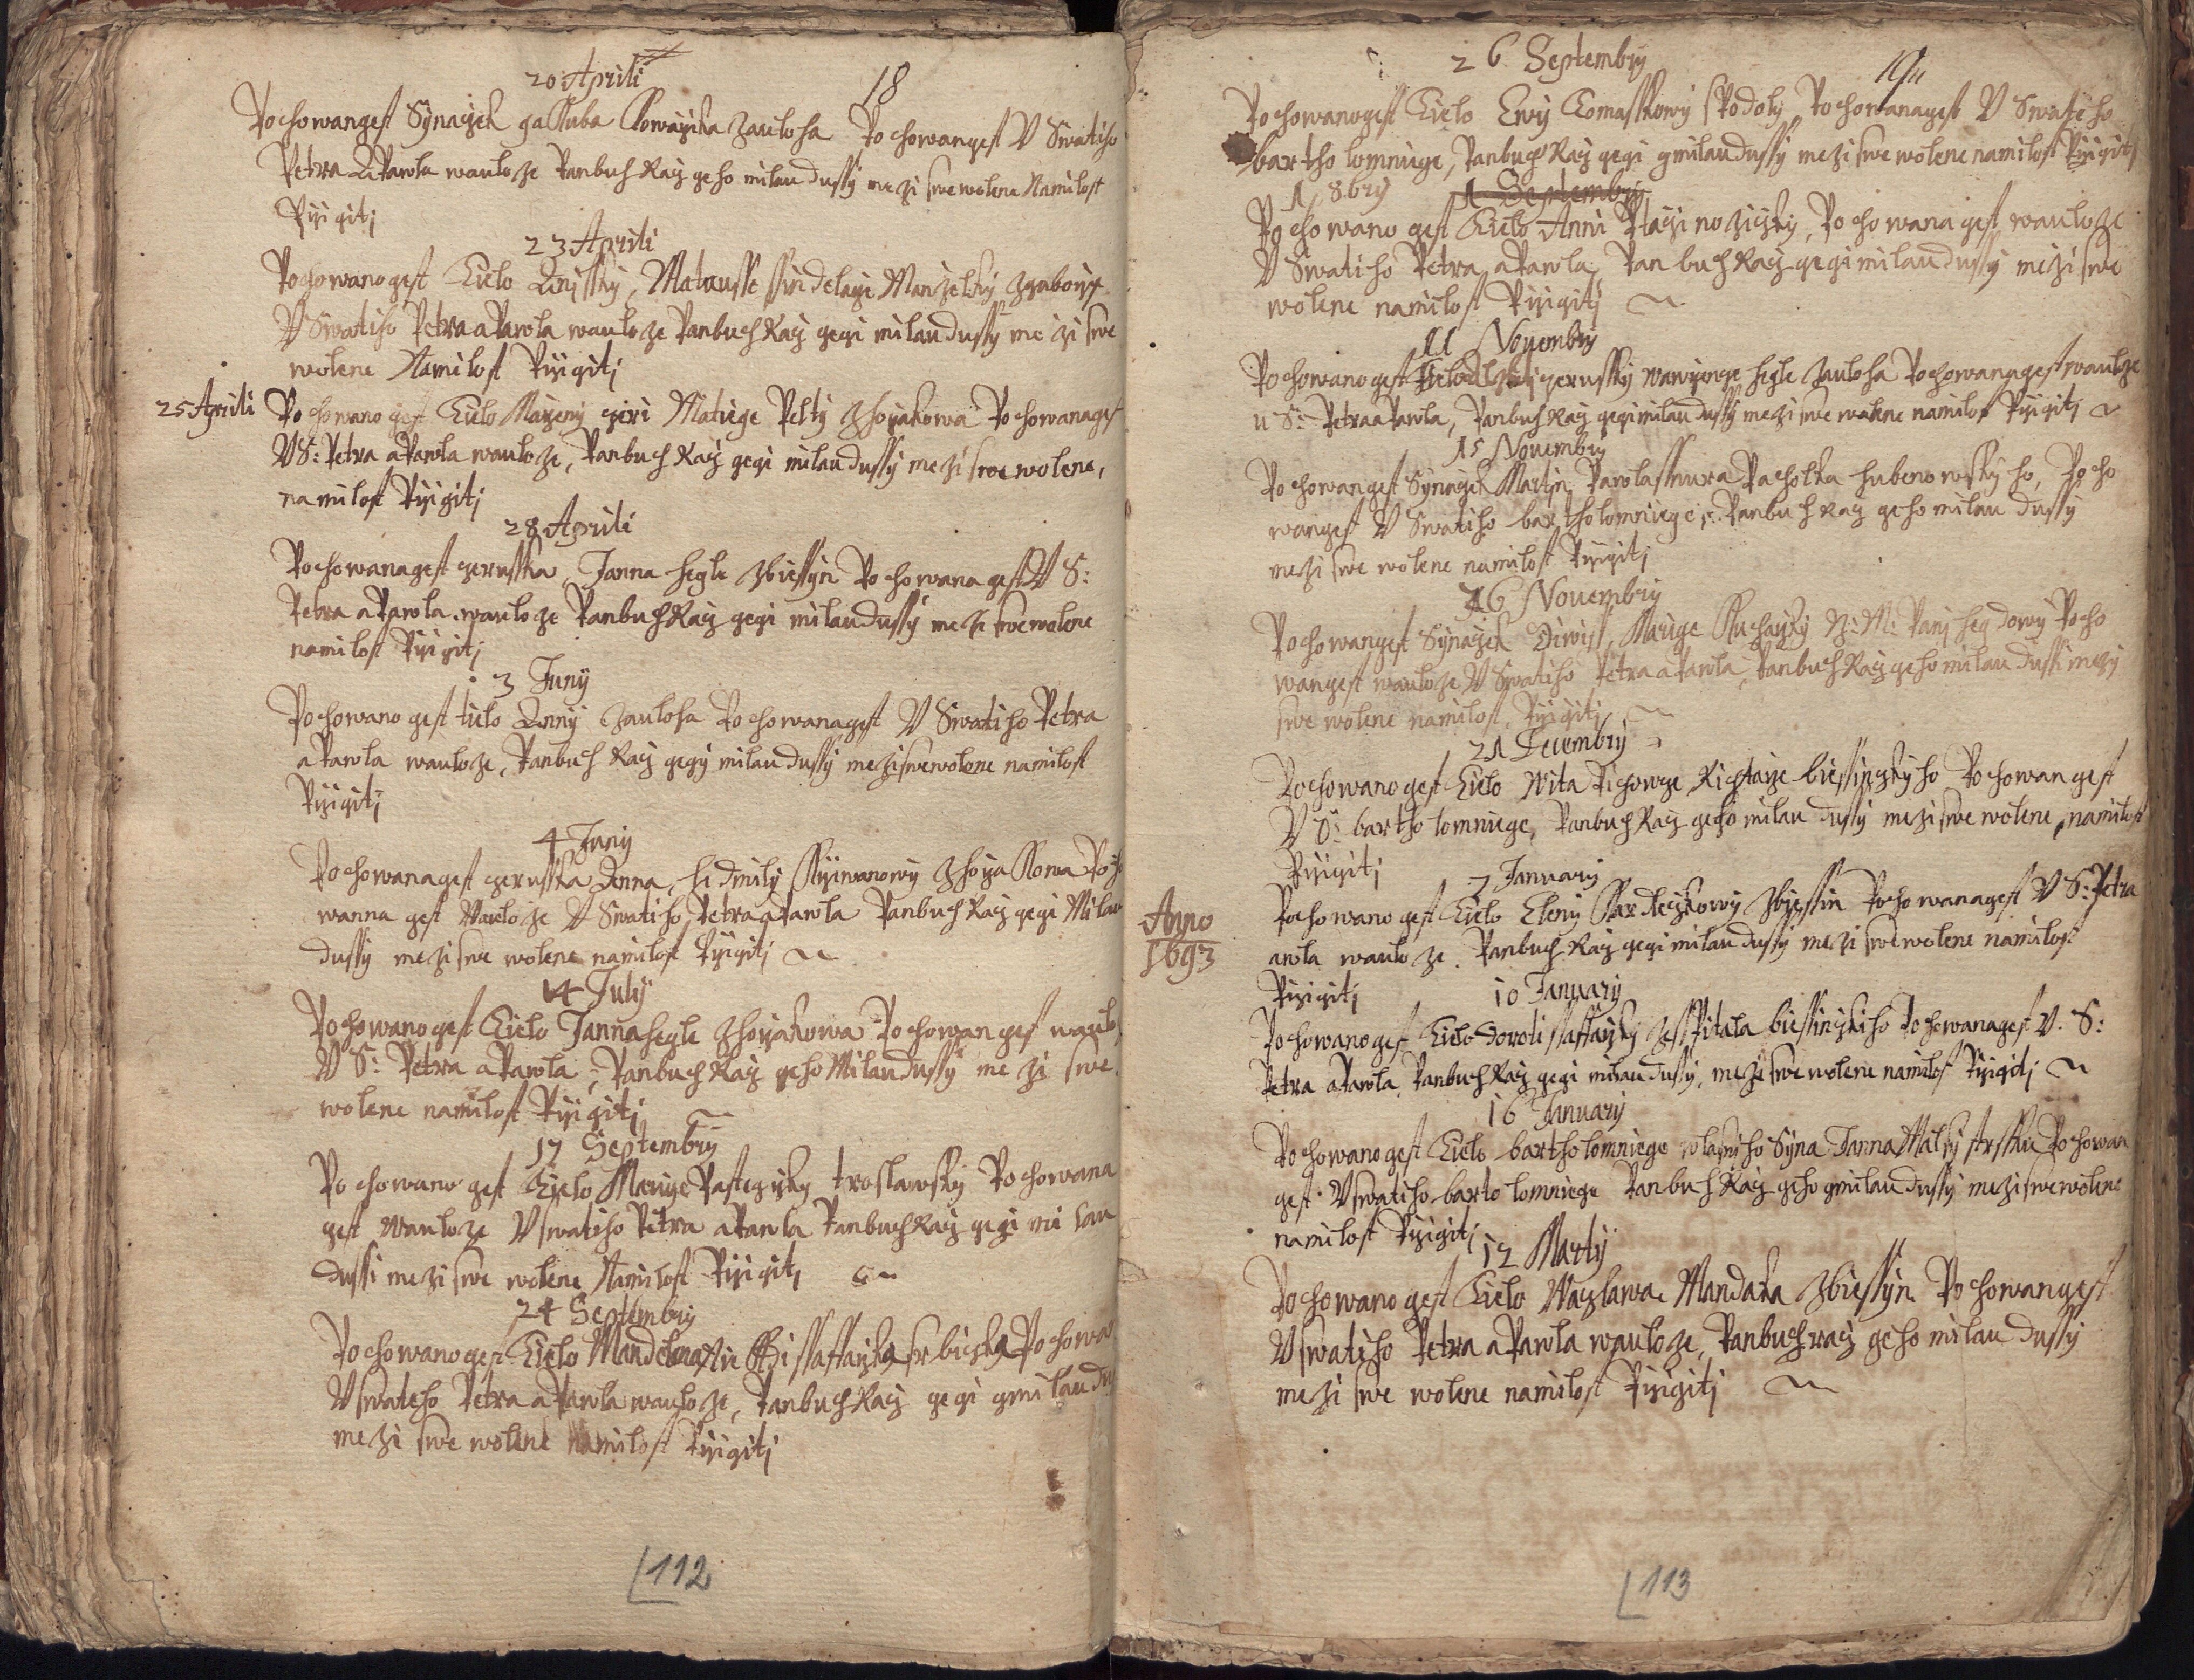 20 Aprili
18
Pochowangest Synaczek gakuba Kowarzika zauloha Pochowangest V Swatiho
Petra a Pawla wauloze Panbuch Racz geho milau dussy mezi swe wolene Namilost
Przigiti
23 Aprili
Pochowanogest Tielo Anissky, Matausse ssindelarze Manzelky
V Swatiho Petra a Pawla wauloze Panbuch Racz gegi milau dussy mezi swe
wolene Namilost Przigiti
25 Aprili Pochowano gest Tielo Matiege Pochowanagest
V S: Petra a Pawla wauloze, Panbuch Racz gegi milau dussy mezi swe wolene,
namilost Przigiti
28 Aprili
Pochowanagest czeruszka Janna hegle zbiessyn Pochowana gest V S:
Petra a Pawla wauloze Panbuch Racz gegi milau dussy mezi swe wolene
namilost Przigiti
3 Juny
Pochowano gest tielo Anny zauloha Pochowanagest V Swatiho Petra
a Pawla wauloze, Panbuch Racz gegy milau dussy mezi swe wolene namilost
Przigiti
4 Juny
Pochowanagest czeruszka Anna, Pocho
wanna gest Wauloze V Swatiho Petra a Pawla Panbuch Racz gegi Milau
dussy mezi swe wolene namilost Przigiti
14 July
Pochowano gest Tielo Janna hegle zhorzakowa Pochowan gest waulo
V S: Petra a Pawla, Panbuch Racz geho Milau dussy mezi swe
wolene namilost Przigiti
17 Septembry
Pochowano gest Tielo Marige troslawsky Pochowana
gest Wauloze V swatiho Petra a Pawla Panbuch Racz gegi milau
dussi mezi swe wolene Namilost Przigiti
24 Septembry
Pochowano gest Tielo Mandelena ssaffarzka Pochowa
V swateho Petra a Pawla wauloze, Panbuch Racz gegi gmilau du
mezi swe wolene namilost Przigiti
112
26 Septembry
19
Pochowanogest Tielo Ewy Tomasskowy spodoly, Pochowanagest V Swateho
bartholomniege, Panbuch Racz gegi gmilau dussy mezi swe wolene namilost Przigiti
1 8bry 1 Septembry
Pochowano gest Tielo Anni Pochowana gest wauloze
V Swatiho Petra a Pawla, Pan buch Racz gegi milau dussy mezi swe
wolene namilost Przigiti
11 Nouembry
Pochowanogest czerussky wawrzence hegle zauloha Pochowanagest wauloze
u S: Petra a Pawla, Panbuch Racz gegi milau dussy mezi swe wolene namilost Przigiti
15 Nouembry
Pochowangest Synaczek Martin, Pawla ssnura Pacholka hubenowskyho, Pocho
wangest V Swatiho bartholomniege, Panbuch racz geho milau dussy
mezi swe wolene namilost Przigiti
16 Nouembry
Pochowangest Synaczek Diwiss, Marige Kucharzky Pani Pocho
wangest wauloze V Swatiho Petra a Pawla, Panbuch Racz geho milau dussi mezy
swe wolene namilost, Przigiti
21 Decembry
Pochowanogest Tielo Wita Richtarze biessinskyho Pochowan gest
V S: bartholomniege, Panbuch Racz geho milau dussy mezi swe wolene, namilost
Przigiti
7 January
Anno
1693
Pochowano gest Tielo Eleny zbiessin Pochowanagest V S: Petra
awla wauloze. Panbuch Racz gegi milau dussy mezi swe wolene namilost
Przigiti
10 January
Pochowanogest Tielo Doroti ssaffarzky zesspitala biessinskiho Pochowanagest V. S:
Petra a Pawla, Panbuch Racz gegi milau dussy, mezi swe wolene namilost Przigiti
16 January
Pochowano gest Tielo bartholomniege wlasniho Syna Janna Pochowan
gest V swatiho bartolomniege Panbuch Racz geho gmilau dussy mezi swe wolene
namilost Przigiti
12 Marty
Pochowano gest Tielo Waczlawa Mandaka zbiessyn Pochowan gest
V swatiho Petra a Pawla wauloze, Panbuch racz geho milau dussy
mezi swe wolene namilost Przigiti
113